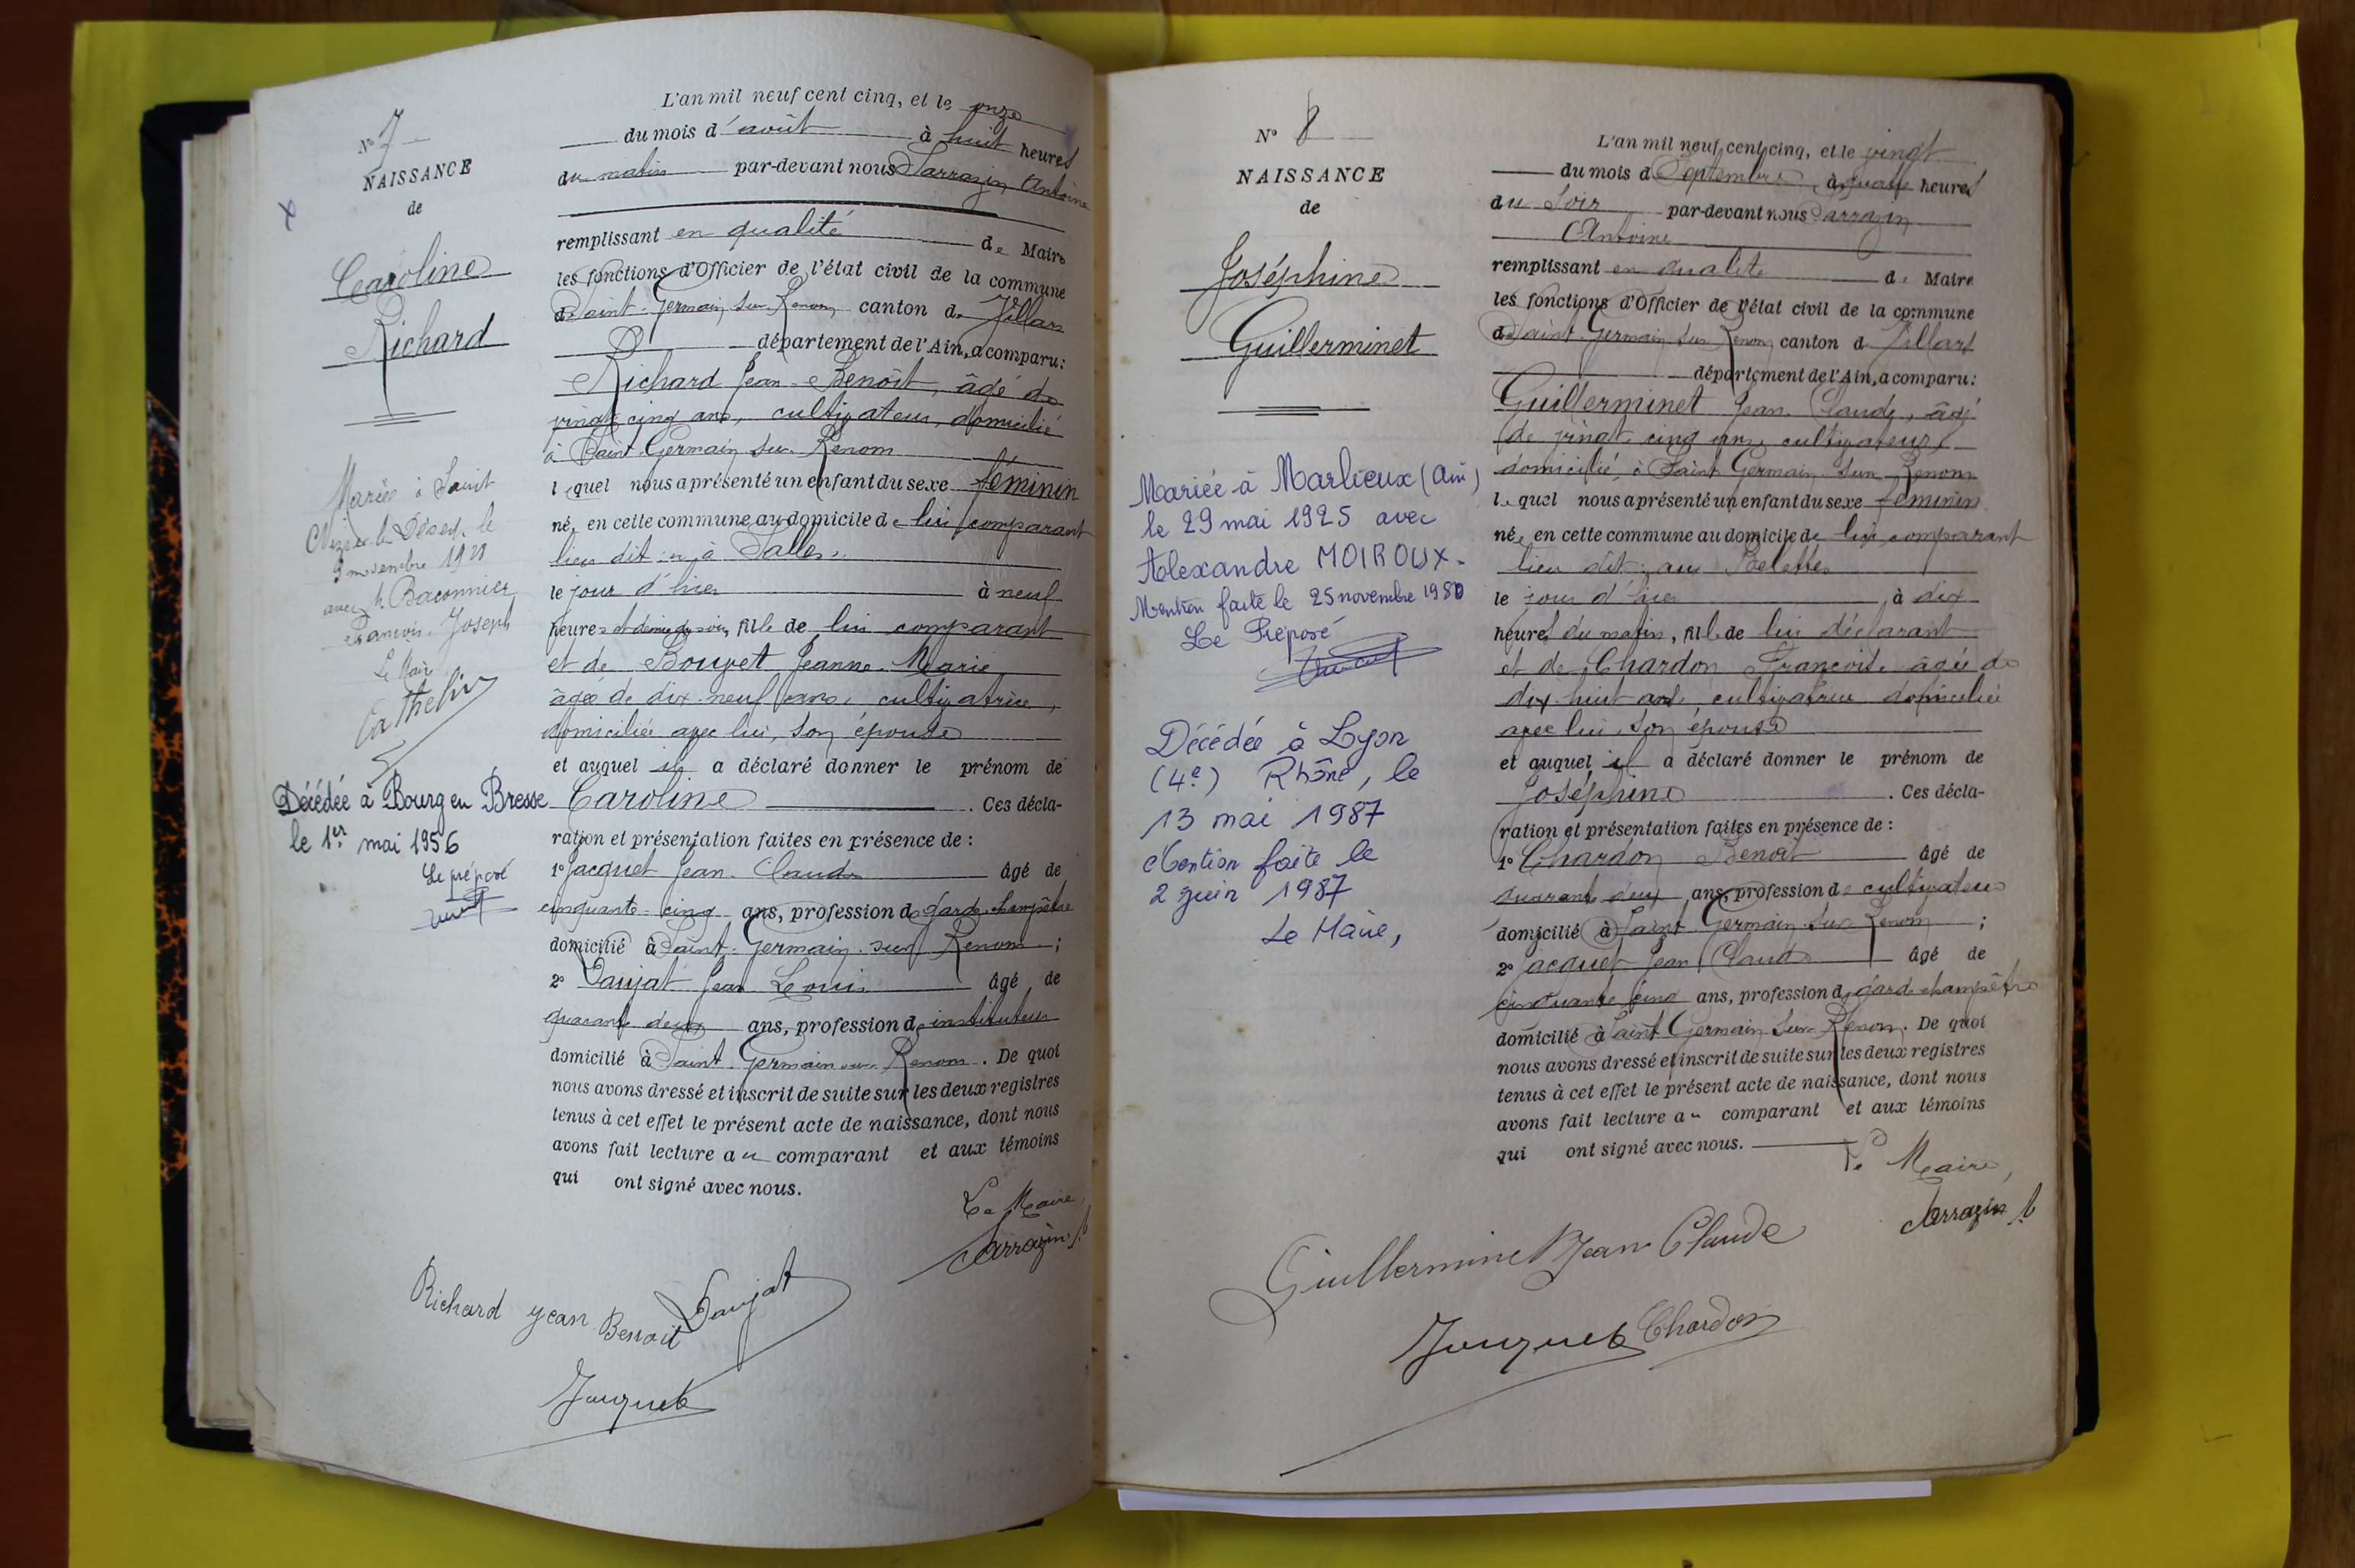 N° 7
NAISSANCE
de
Caroline
Richard
Mariée à Saint
Nizier le Désert, le
9 novembre 1921
avec M. Baconnier
François Joseph
Le Maire
Cathelin
Décédée à Bourg en Bresse
le 1er mai 1956
Le préposé
L'an mil neuf cent cinq, et le onze
du mois d'août à huit heures
du matin par-devant nous Sarrazin Antoine
remplissant en qualité de Maire
les fonctions d'Officier de l'état civil de la commune
de Saint-Germain sur Renom canton de Villars
département de l'Ain, a comparu:
Richard Jean-Benoît, âgé de
vingt cinq ans, cultivateur, domicilié
à Saint-Germain sur Renom
lequel nous a présenté un enfant du sexe féminin
née en cette commune au domicile de lui comparant
lieu dit: à Salles,
le jour d'hier à neuf
heures et demie du soir, fille de lui comparant
et de Bouvet Jeanne-Marie
âgée de dix-neuf ans, cultivatrice,
domiciliée avec lui, son épouse
et auquel il a déclaré donner le prénom de
Caroline . Ces décla-
ration et présentation faites en présence de :
1° Jacquet Jean-Claude âgé de
cinquante-cinq ans, profession de garde-champêtre
domicilié à Saint-Germain-sur Renom ;
2° Daujat Jean Louis âgé de
quarante deux ans, profession d'instituteur
domicilié à Saint-Germain-sur-Renom. De quoi
nous avons dressé et inscrit de suite sur les deux registres
tenus à cet effet le présent acte de naissance, dont nous
avons fait lecture au comparant et aux témoins
qui ont signé avec nous.
Le Maire,
Sarrazin A
Richard jean Benoit Daujat
Jacquet
N° 8
NAISSANCE
de
Joséphine
Guillerminet
Mariée à Marlieux (Ain)
le 29 mai 1925 avec
Alexandre MOIROUX.
Mention faite le 25 novembre 1980
Le Préposé
Décédée à Lyon
(4e) Rhône, le
13 mai 1987
Mention faite le
2 juin 1987
Le Maire,
L'an mil neuf cent cinq, et le vingt
du mois de Septembre à quatre heures
du soir par-devant nous Sarrazin
Antoine
remplissant en qualité de Maire
les fonctions d'Officier de l'état civil de la commune
de Saint-Germain sur Renom canton de Villars
département de l'Ain, a comparu:
Guillerminet Jean Claude, âgé
de vingt-cinq ans, cultivateur,
domicilié à Saint Germain sur Renom
lequel nous a présenté un enfant du sexe féminin
née en cette commune au domicile de lui comparant
lieu dit: aux Belettes
le jour d'hier, à dix
heures du matin, fille de lui déclarant
et de Chardon Françoise âgée de
dix-huit ans, cultivatrice domiciliée
avec lui, son épouse
et auquel il a déclaré donner le prénom de
Joséphine . Ces décla-
ration et présentation faites en présence de :
1° Chardon Benoit âgé de
quarante deux ans, profession de cultivateur
domicilié à Saint-Germain-sur Renom ;
2° Jacquet Jean Claude âgé de
cinquante cinq ans, profession de garde-champêtre
domicilié à Saint Germain sur Renom. De quoi
nous avons dressé et inscrit de suite sur les deux registres
tenus à cet effet le présent acte de naissance, dont nous
avons fait lecture au comparant et aux témoins
qui ont signé avec nous.
Le Maire,
Sarrazin A
Guillerminet Jean Claude
Jacquet Chardon